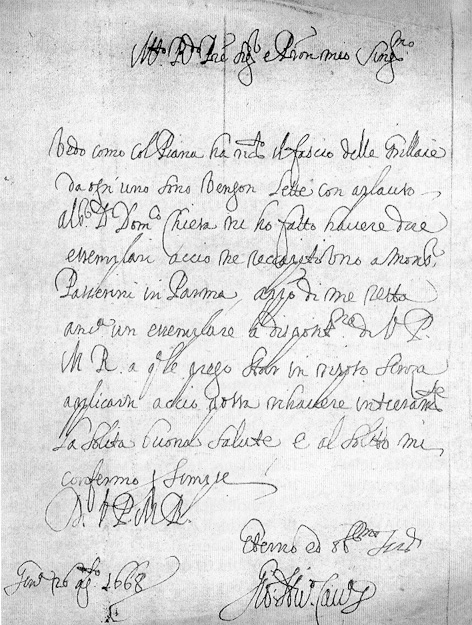 Mto Rdo Pre Sigr e Pron mio Singmo
Vedo como col Piana ha ricto il fascio delle Grillaie
da ogn'uno sono vengon lette con aplauso
al Dr Domco Chiesa ne ho fatto havere due
exemplari accio ne recapiti uno a Monsr
Passerini in Parma di me resta
anco un exemplare a disposne di V P
M R. a qle prego star in riposo senza
applicarsi accio possa rihavere interamte
la solita buona salute e al solito mi
confermo p sempre
D. V P M R.
1668